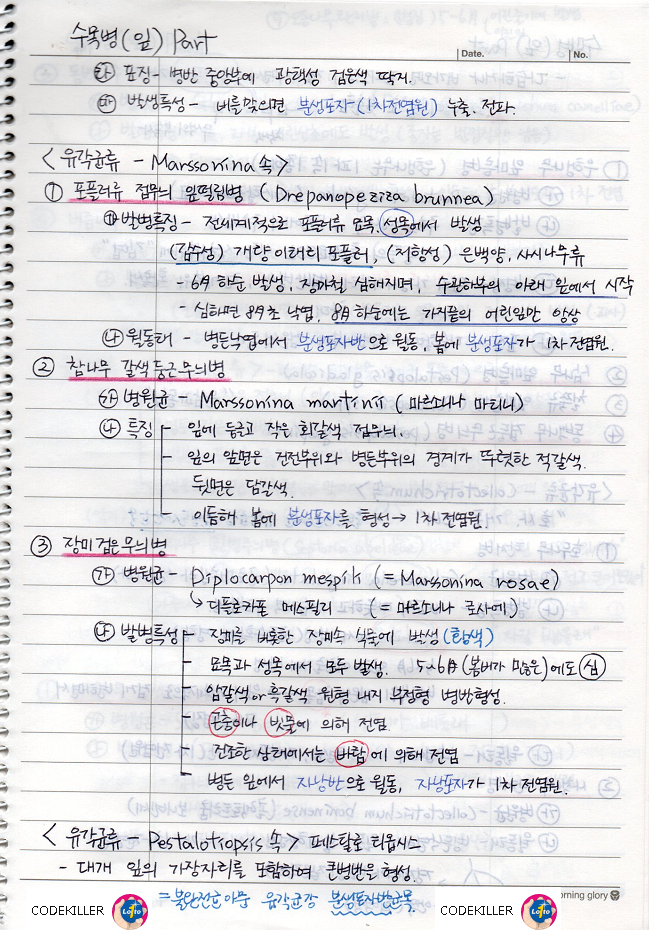 수목병(잎) Part
Date. No.
㉰ 표징- 병반 중앙부에 광택성 검은색 딱지.
㉱ 발생특성 - 비를맞으면 분생포자(1차전염원) 누출. 전파.
<유각균류 - Marssonina 속>
① 포플러류 점무늬 잎떨림병 (Drepanopeziza brunnea)
㉮발병특징 - 전세계적으로 포플러류 묘목, 성목에서 발생
(감수성) 개량 이태리 포플러, (저항성) 은백양, 사시나무류
- 6月 하순 발생, 장마철 심해지며 수관하부의 아래 잎에서 시작
- 심하면 8月초 낙엽. 8月 하순에는 가지끝의 어린잎만 앙상
㉯ 월동태 - 병든낙엽에서 분생포자반으로 월동, 봄에 분생포자가 1차전염원.
② 참나무 갈색둥근무늬병
㉮ 병원균 - Marssonina martinii (마르소니나 마티니)
㉯ 특징 - 잎에 둥글고 작은 회갈색 점무늬.
- 잎의 앞면은 건전부위와 병든부위의 경계가 뚜렷한 적갈색.
뒷면은 담갈색.
- 이듬해 봄에 분생포자를 형성→ 1차전염원.
③ 장미 검은무늬병
㉮ 병원균- Diplocarpon mespili (=Marssonina rosae)
↳ 디플로카포 메스필리 (= 마르소니나 로사에)
㉯ 발병특성 - 장미를 비롯한 장미속 식물에 발생 (흑색)
- 묘목과 성목에서 모두 발생. 5~6月(봄비가 많은)에도 심
- 암갈색or흑갈색 원형 내지 부정형 병반형성.
- 곤충이나 빗물에 의해 전염.
- 건조한 상태에서는 바람에 의해 전염
- 병든 잎에서 자낭반으로 월동, 자낭포자가 1차전염원.
<유각균류 - Pestalotiopsis속> 페스탈로티옵시스
- 대개 잎의 가장자리를 포함하여 큰병반을 형성.
=불완전균아문 유각균강 분생포자반균목.
morning glory
CODEKILLER Lotto CODEKILLER Lotto